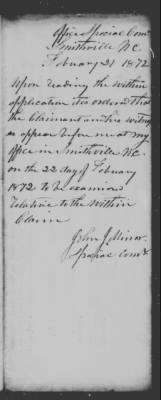 Office Special Com^r
Smithville N.C.
Febuary 21 1872
Upon reading the within
application its ordered that
the Claimant and his witness
es appear before me at my
Office in Smithville N.C.
on the 22 day of Febuary
1872 to be examined
relative to the within
Claim
John J Minor
Special Com^r